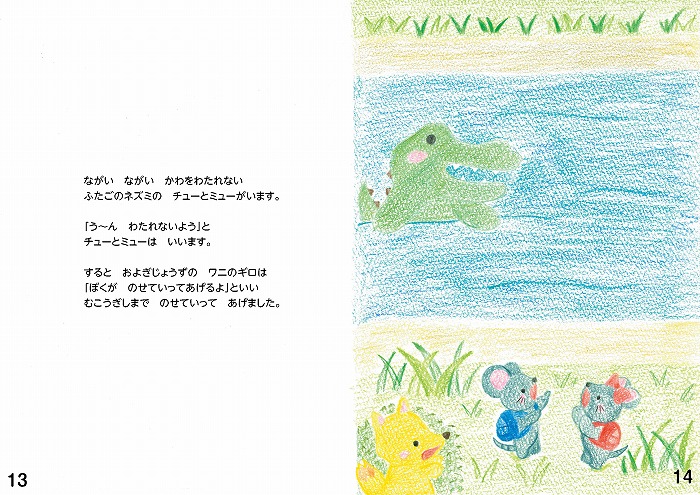 ながい　ながい　かわをわたれない
ふたごのネズミの　チューとミューがいます。
「う～ん　わたれないよう」と
チューとミューは　いいます。
すると　およぎじょうずの　ワニのギロは
「ぼくが　のせていってあげるよ」といい
むこうぎしまで　のせていって　あげました。
13
14